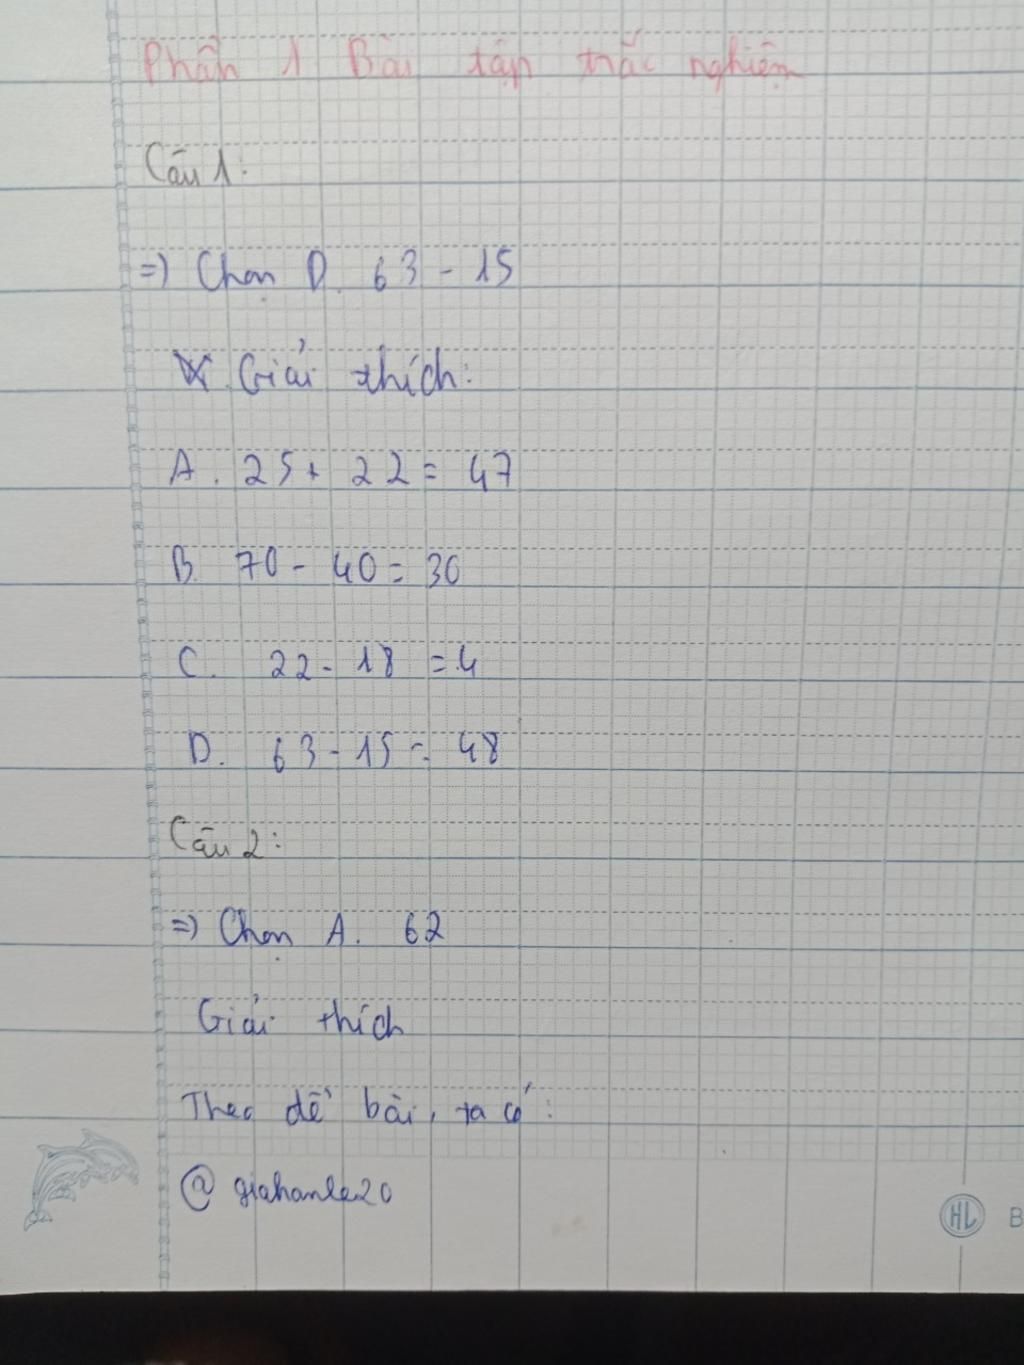 Phần 1 Bài tập trắc nghiệm
Câu 1:
=) Chọn D. 63 - 15
Giải thích:
A. 25 + 22 = 47
B. 70 - 40 = 30
C. 22 - 18 = 4
D. 63 - 15 = 48
Câu 2:
=) Chọn A. 62
Giải thích
Theo đề bài, ta có:
@giahanle20
HL B